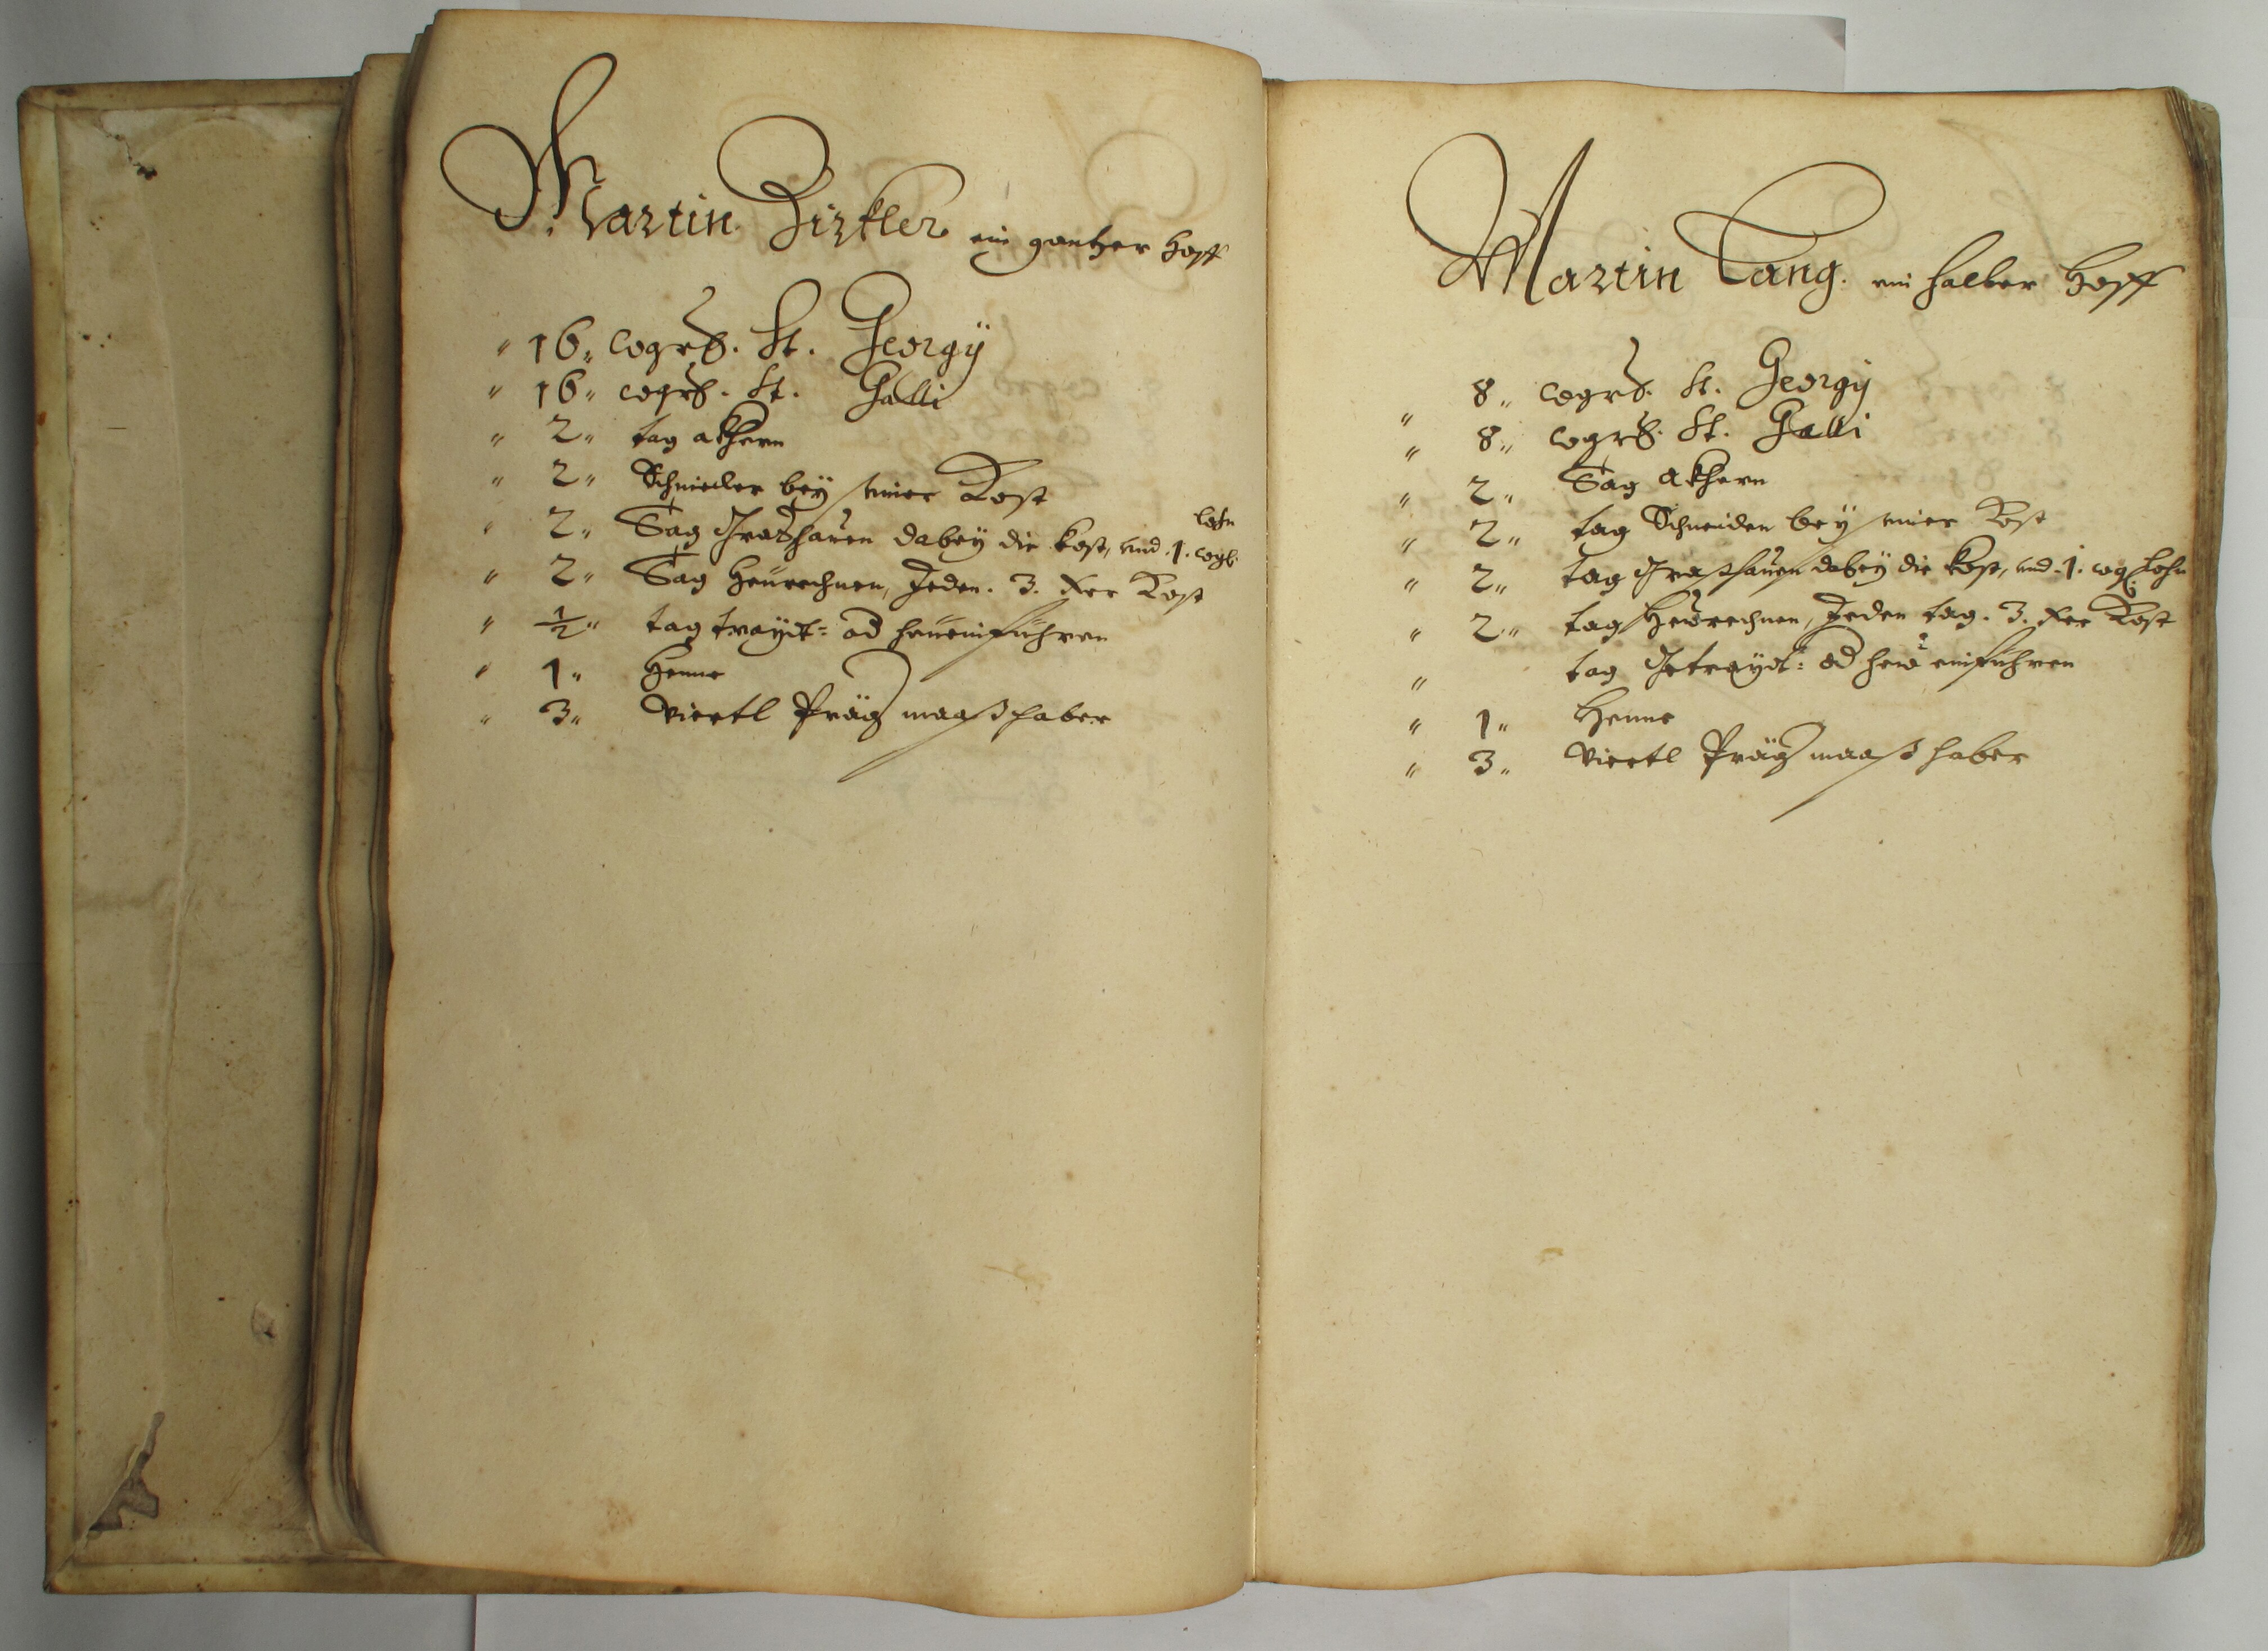 Martin Zirkler ein gantzer Hoff
" 16 " wgrß. St. Georgÿ
" 16 " wgrß. St. Galli
" 2 " tag akhern
" 2 " Schnieder beÿ seiner Kost
lohn
" 2 " Tag Graßhauen dabeÿ die Kost, und .1. wgß.
" 2 " Tag Heürechnen, Jeden. 3. Xer Kost
" ½ " tag traydt= od heüeinführen
" 1 " Henne
" 3 " Viertl Präg maaß haber
Martin Lang. ein halber Hoff
" 8 " wgrß. St. Georgÿ
" 8 " wgrß. St. Galli
" 2 " Tag akhern
" 2 " tag Schneiden beÿ seiner Kost
" 2 " tag Graßhauen dabeÿ die Kost, und .1. wgß. Lohn
" 2 " tag Heürechnen, Jeden tag. 3. Xer Kost
" tag Getraydt= od heü einführen
" 1 " Henne
" 3 " Viertl Präg maaß haber